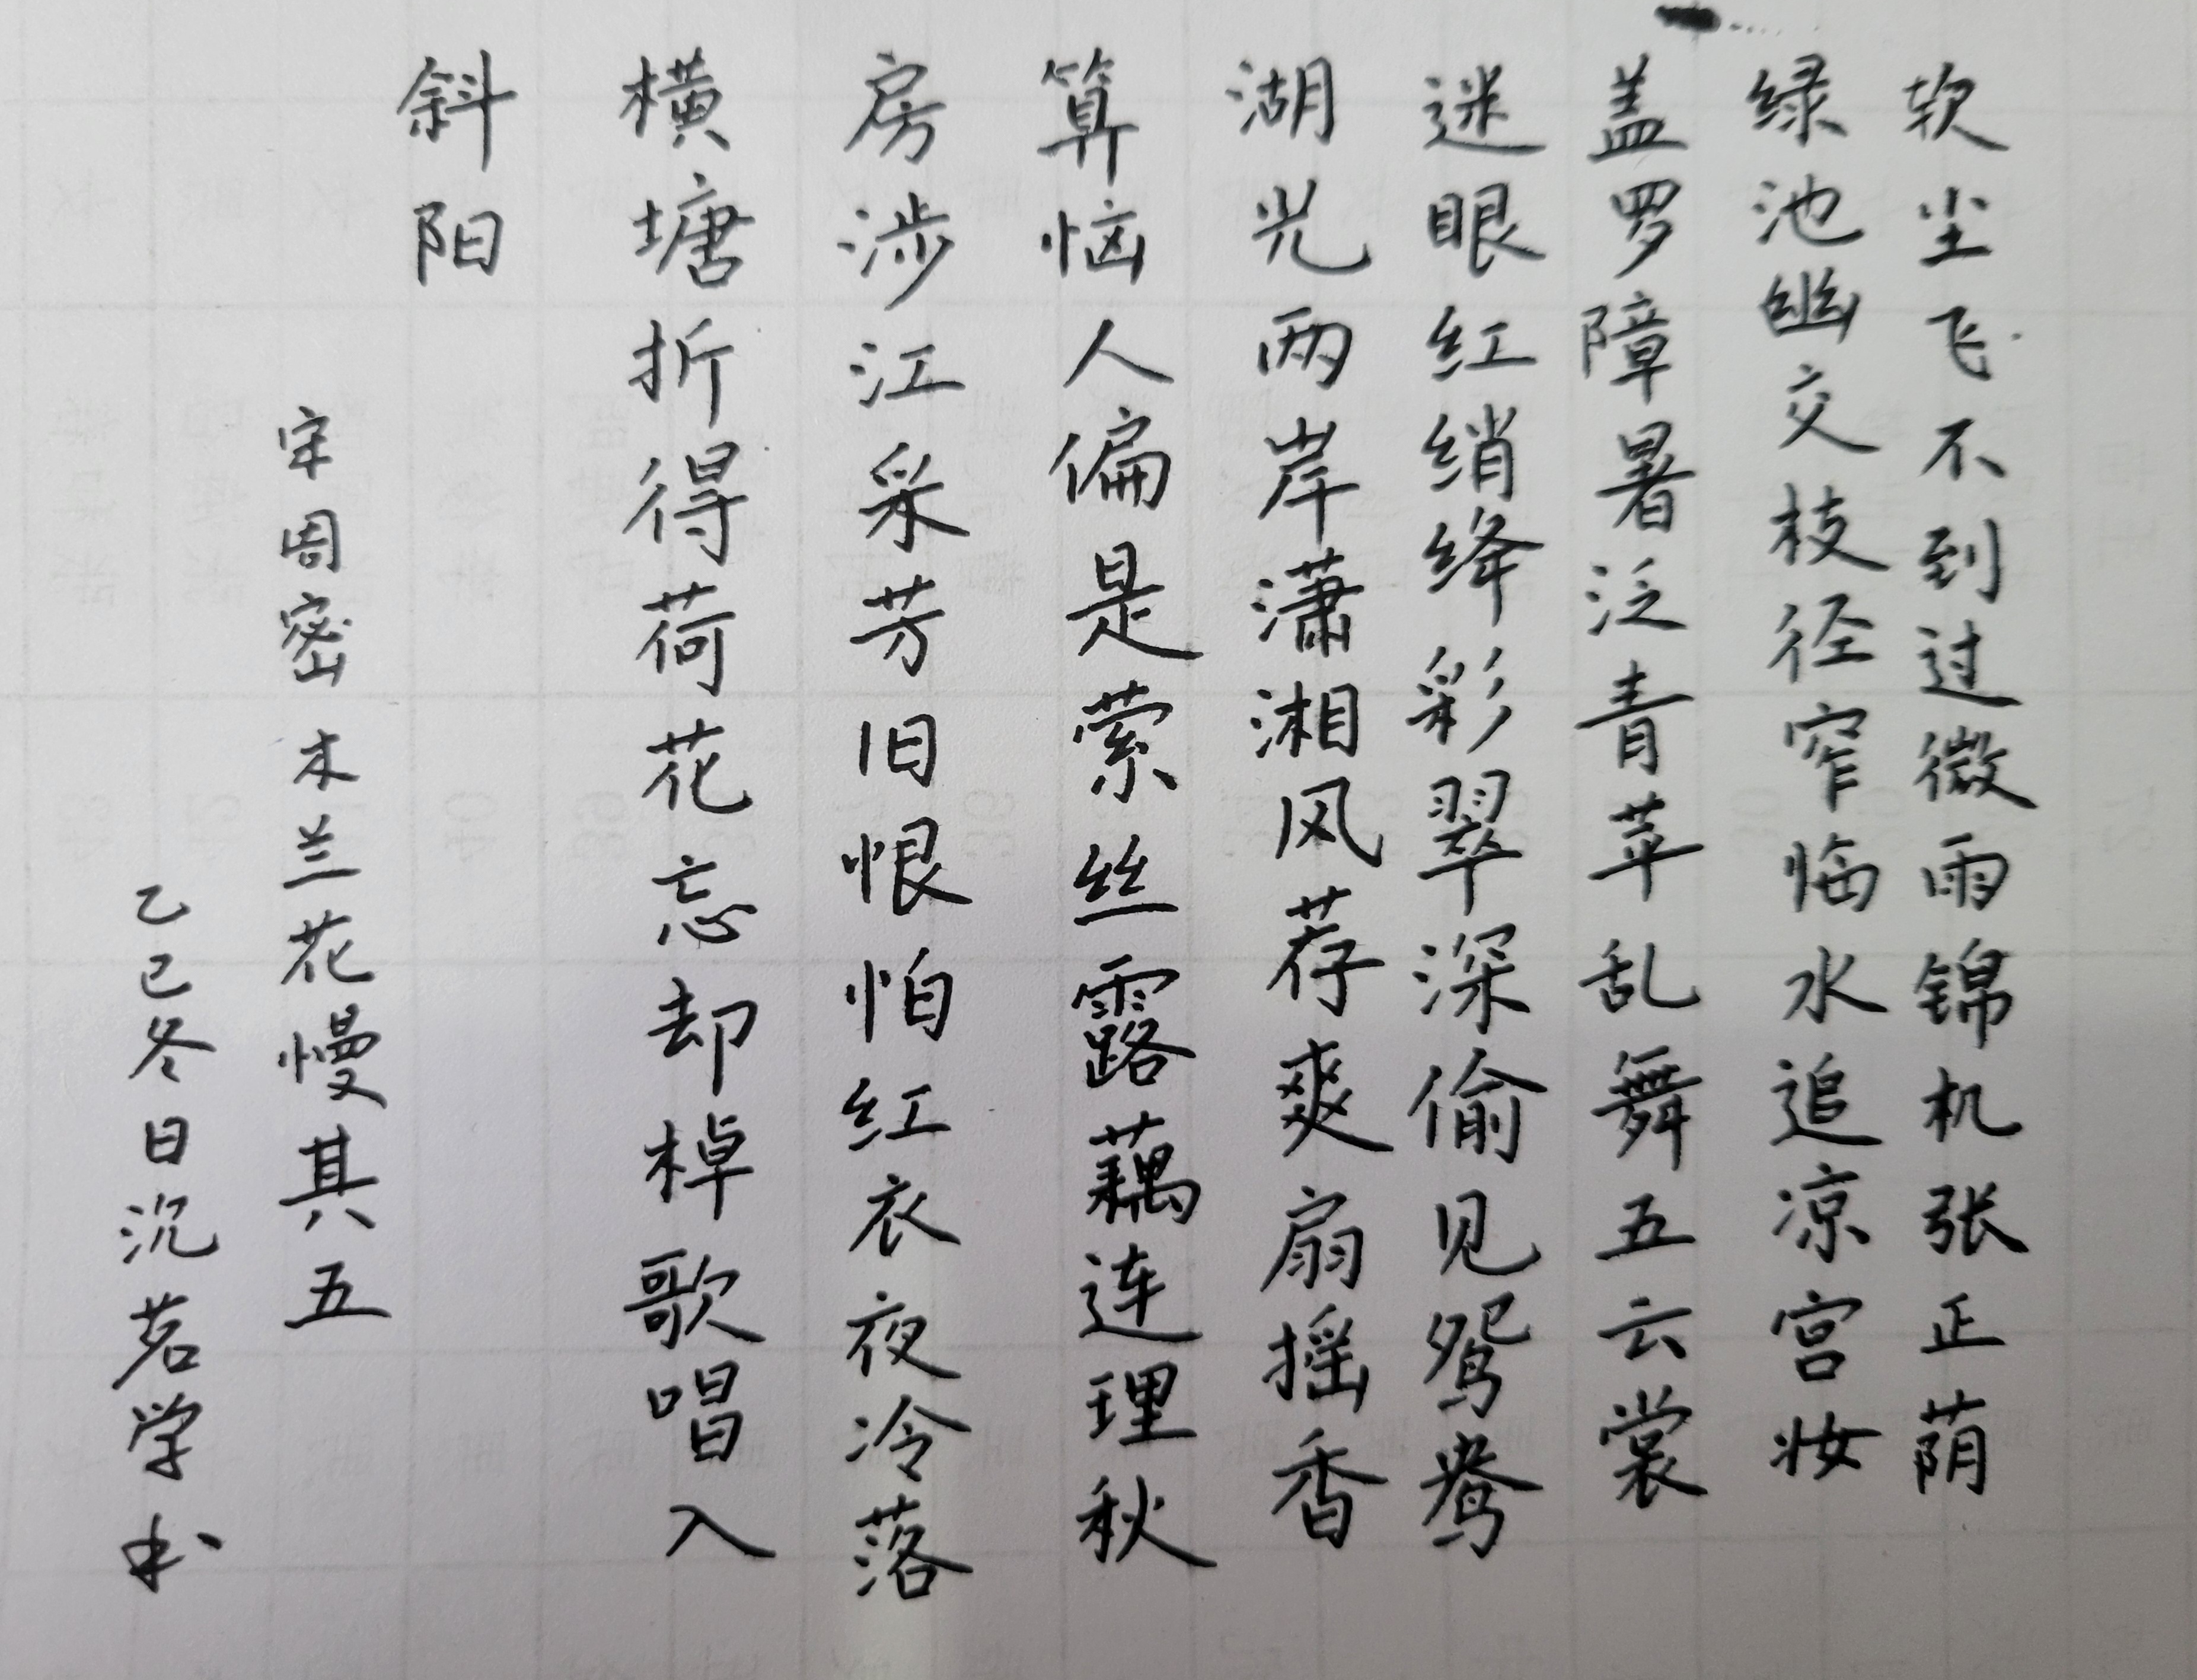 软尘飞不到过微雨锦机张正荫
绿池幽交枝径窄临水追凉宫妆
盖罗障暑泛青苹乱舞五云裳
迷眼红绡绛彩翠深偷见鸳鸯
湖光两岸潇湘风荐爽扇摇香
算恼人偏是萦丝露藕连理秋
房涉江采芳旧恨怕红衣夜冷落
横塘折得荷花忘却棹歌唱入
斜阳
宋周密木兰花慢其五
乙巳冬日沉茗学书